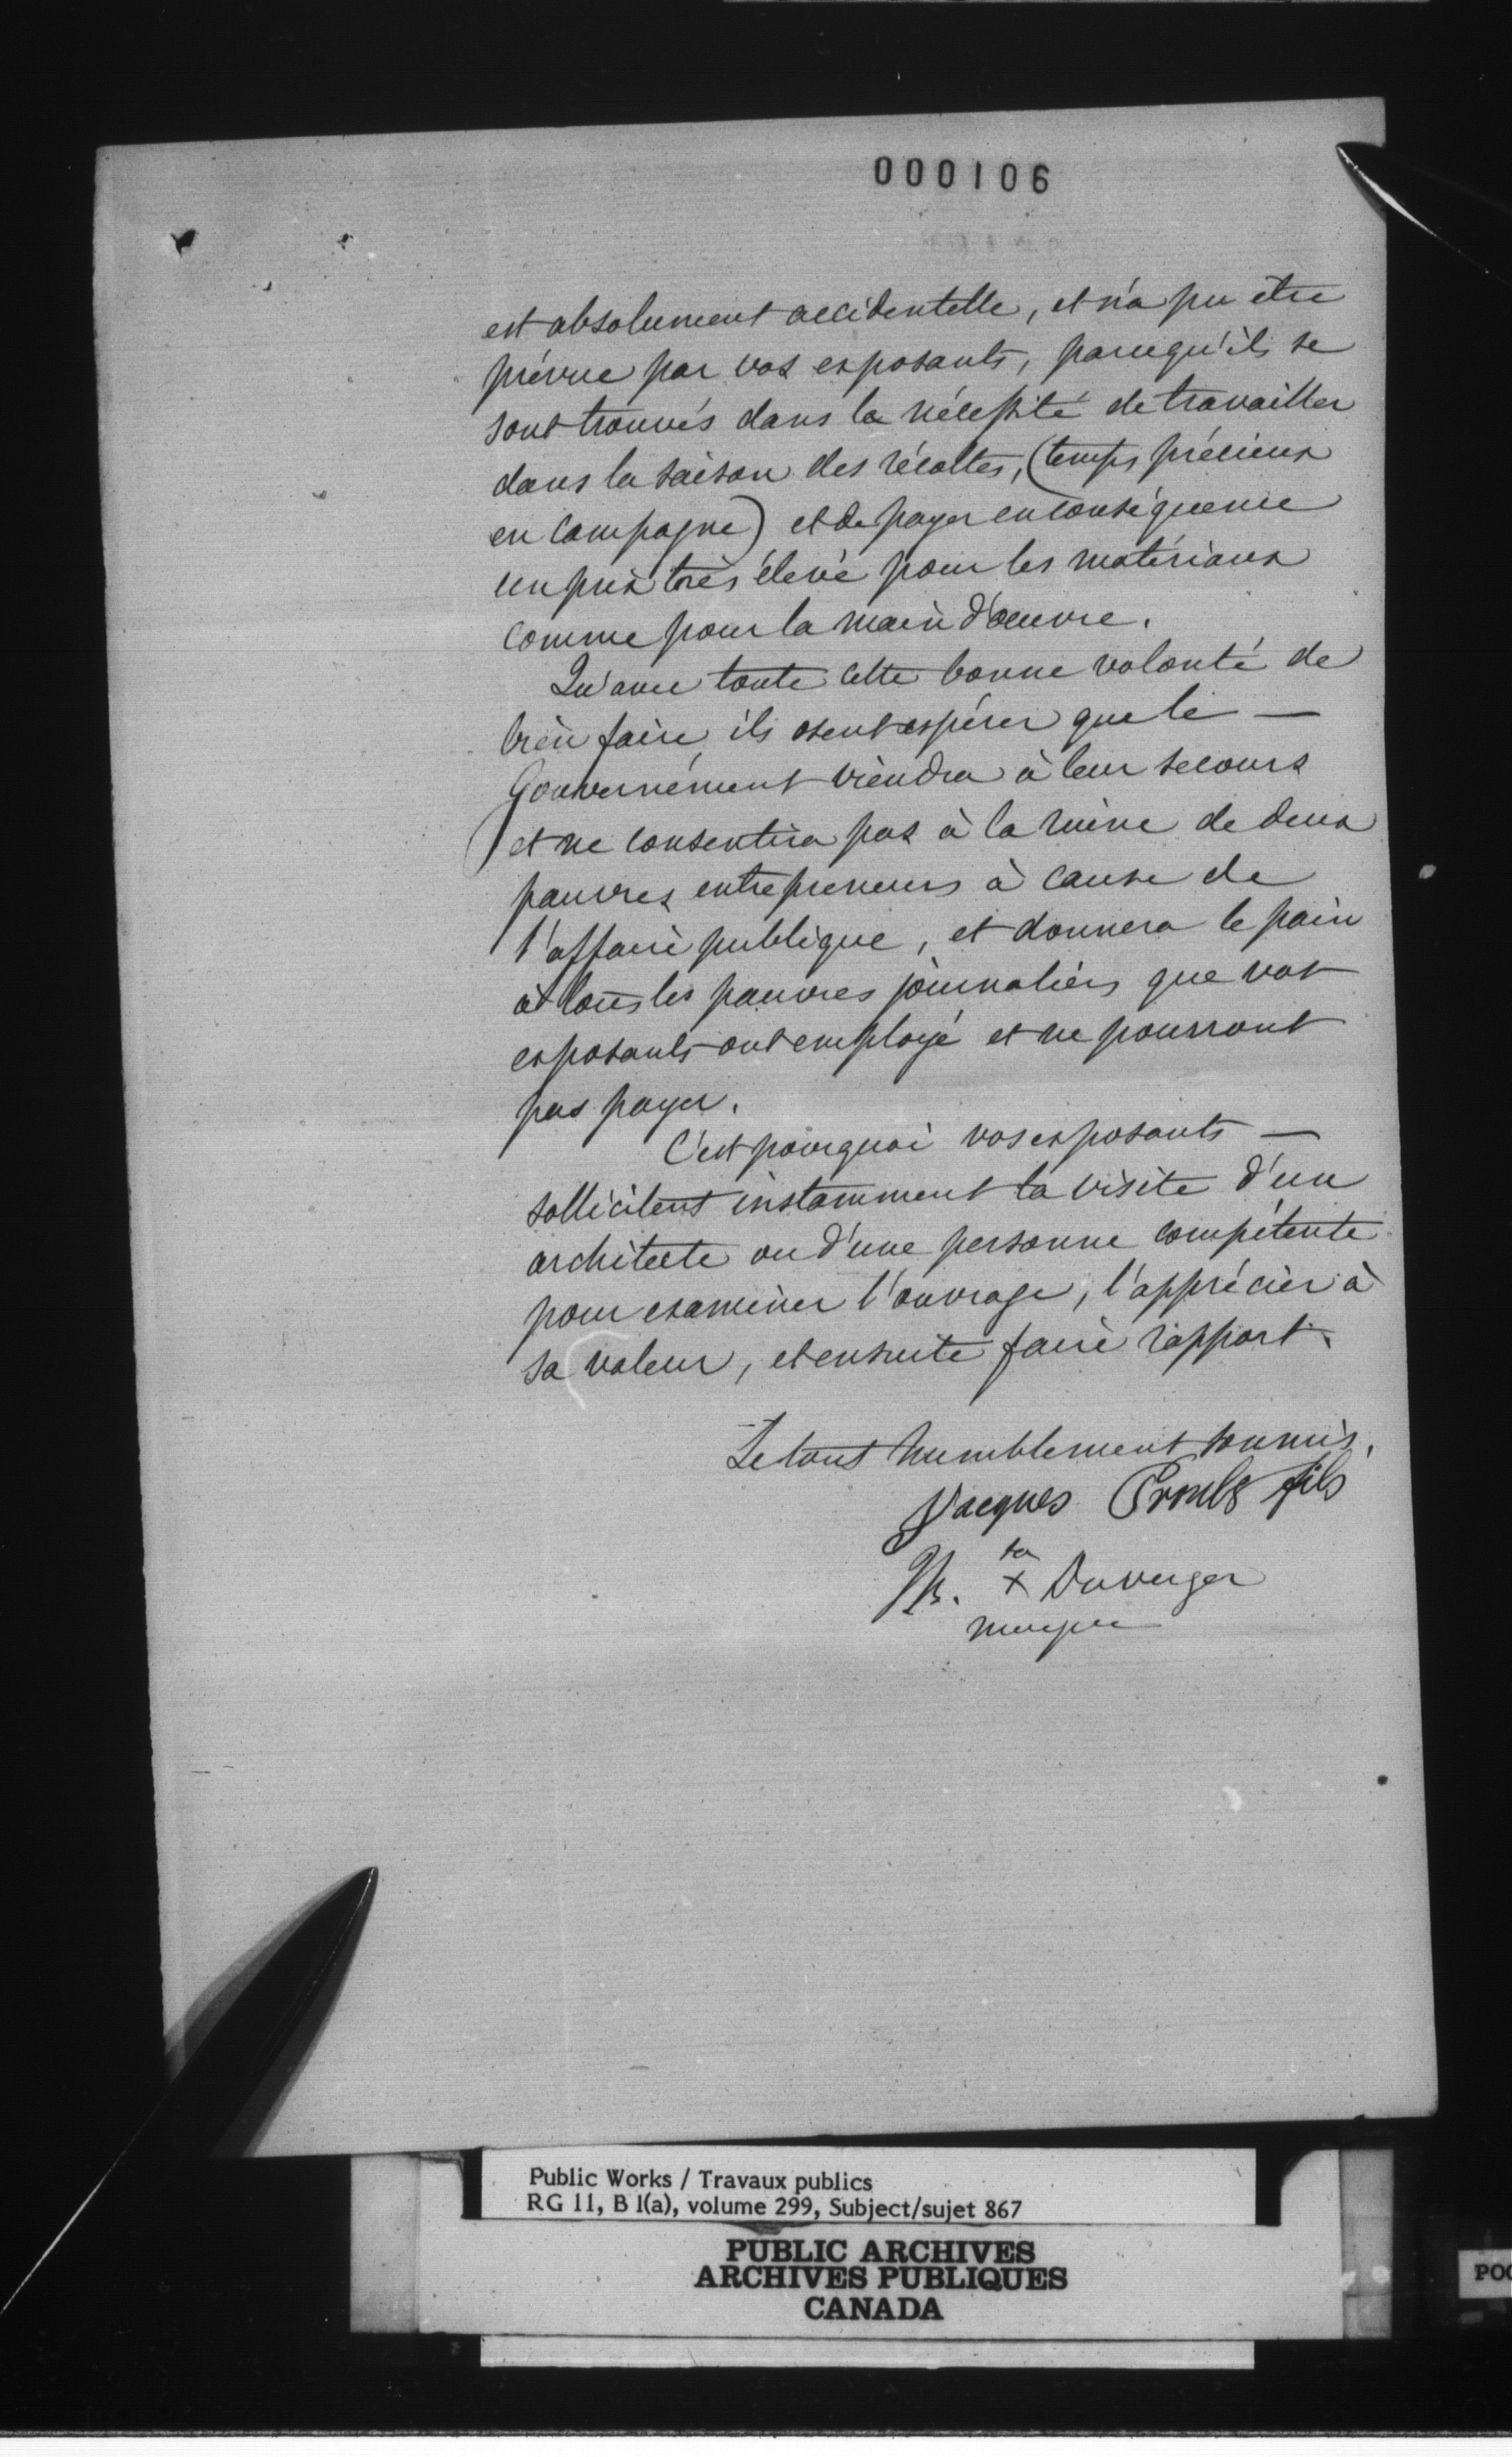 000106
est absolument accidentelle, et n'a pu être
prévue par vos exposants, parcequ'ils se
sont trouvés dans la nécessité de travailler
dans la saison des récoltes, (temps précieux
en campagne) et de payer en conséquence
un prix très élevé pour les matériaux
comme pour la main d'oeuvre.
Qu'avec toute cette bonne volonté de
bien faire, ils osent espérer que le —
Gouvernement viendra à leur secours
et ne consentira pas à la ruine de deux
pauvres entrepreneurs à cause de
l'affaire publique, et donnera le pain
à tous les pauvres journaliers que vos
exposants ont employé et ne pourront
pas payer.
C'est pourquoi vos exposants —
sollicitent instamment la visite d'un
architecte ou d'une personne compétente
pour examiner l'ouvrage, l'apprécier à
sa valeur, et ensuite faire rapport.
Le tout humblement soumis,
Jacques fils
sa
x Duverger
marque
Public Works / Travaux publics
RG 11, B 1(a), volume 299, Subject/sujet 867
PUBLIC ARCHIVES
ARCHIVES PUBLIQUES
CANADA